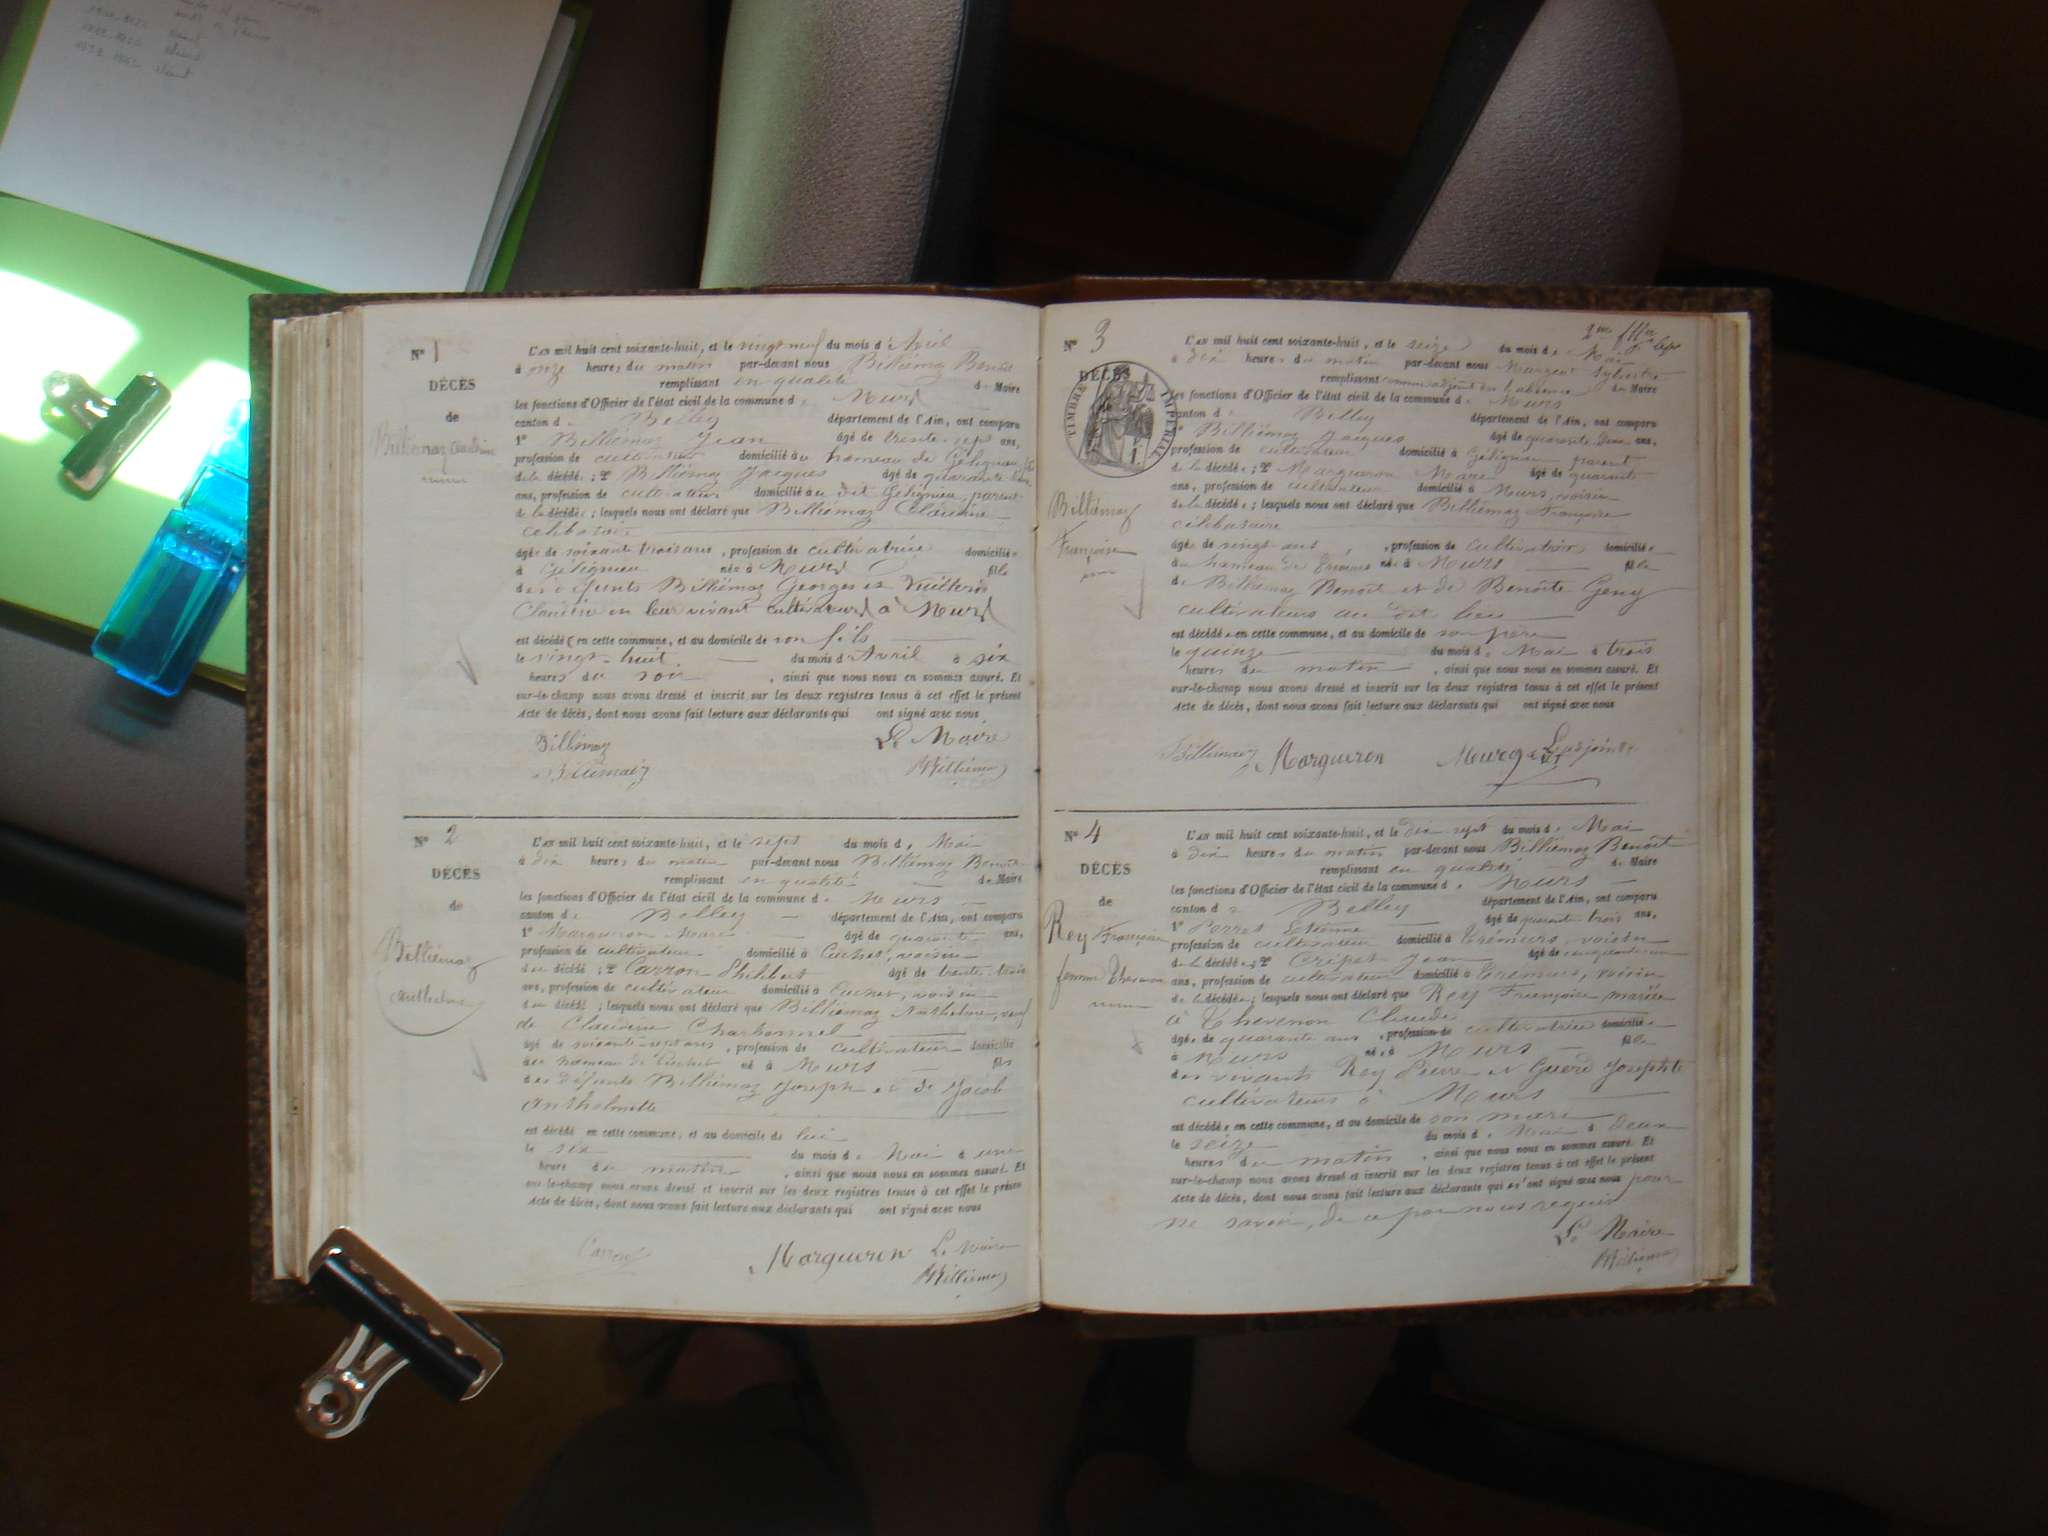 N° 1
DÉCÈS
de
Billiémaz Claudine
L'AN mil huit cent soixante-huit, et le vingt neuf du mois d'Avril
à onze heures du matin par-devant nous Billiémaz Benoît
remplissant en qualité de Maire
les fonctions d'Officier de l'état civil de la commune de Murs
canton de Belley département de l'Ain, ont comparu
1° Billiémaz Jean âgé de trente-sept ans,
profession de cultivateur domicilié au hameau de Gétigneu
de la décédée ; 2° Billiémaz Jacques âgé de quarante
ans, profession de cultivateur domicilié au dit Gétigneu, parent
de la décédée ; lesquels nous ont déclaré que Billiémaz Claudine
célibataire
âgée de soixante trois ans, profession de cultivatrice domiciliée
à Gétigneu née à Murs fille
des défunts Billiémaz Georges et
Claudine en leur vivant cultivateurs à Murs
est décédée en cette commune, et au domicile de son fils
le vingt-huit du mois d'Avril à six
heures du soir, ainsi que nous nous en sommes assuré. Et
sur-le-champ nous avons dressé et inscrit sur les deux registres tenus à cet effet le présent
Acte de décès, dont nous avons fait lecture aux déclarants qui ont signé avec nous
Billiémaz Le Maire
Billiémaz Billiémaz
N° 2
DÉCÈS
de
Billiémaz
Anthelme
L'AN mil huit cent soixante-huit, et le sept du mois de Mai
à dix heures du matin par-devant nous Billiémaz Benoît
remplissant en qualité de Maire
les fonctions d'Officier de l'état civil de la commune de Murs
canton de Belley département de l'Ain, ont comparu
1° Marqueron Marc âgé de quarante ans,
profession de cultivateur domicilié à Cuchet, voisin
du décédé ; 2° Carron Philibert âgé de trente-trois
ans, profession de cultivateur domicilié à Cuchet, voisin
du décédé ; lesquels nous ont déclaré que Billiémaz Anthelme, veuf
de Claudine Charbonnel
âgé de soixante-sept ans, profession de cultivateur domicilié
au hameau de Cuchet né à Murs fils
des défunts Billiémaz Joseph et de Jacob
Anthelmette
est décédé en cette commune, et au domicile de lui
le six du mois de Mai à une
heure du matin, ainsi que nous nous en sommes assuré. Et
sur-le-champ nous avons dressé et inscrit sur les deux registres tenus à cet effet le présent
Acte de décès, dont nous avons fait lecture aux déclarants qui ont signé avec nous
Carron Marqueron Le Maire
Billiémaz
N° 3
DÉCÈS
TIMBRE IMPÉRIAL
Billiémaz
Françoise
L'AN mil huit cent soixante-huit, et le seize du mois de Mai
à dix heures du matin par-devant nous Sylvestre
remplissant comme adjoint en l'absence du Maire
les fonctions d'Officier de l'état civil de la commune de Murs
canton de Belley département de l'Ain, ont comparu
1° Billiémaz Jacques âgé de quarante deux ans,
profession de cultivateur domicilié à Gétigneu parent
de la décédée ; 2° Marqueron Marc âgé de quarante
ans, profession de cultivateur domicilié à Murs, voisin
de la décédée ; lesquels nous ont déclaré que Billiémaz Françoise
célibataire
âgée de vingt ans, profession de cultivatrice domiciliée
au hameau de née à Murs fille
de Billiémaz Benoît et de Benoîte Geny
cultivateurs au dit lieu
est décédée en cette commune, et au domicile de son père
le quinze du mois de Mai à trois
heures du matin, ainsi que nous nous en sommes assuré. Et
sur-le-champ nous avons dressé et inscrit sur les deux registres tenus à cet effet le présent
Acte de décès, dont nous avons fait lecture aux déclarants qui ont signé avec nous
Billiémaz Marqueron
N° 4
DÉCÈS
de
Rey Françoise
femme Thevenon
L'AN mil huit cent soixante-huit, et le dix-sept du mois de Mai
à dix heures du matin par-devant nous Billiémaz Benoît
remplissant en qualité de Maire
les fonctions d'Officier de l'état civil de la commune de Murs
canton de Belley département de l'Ain, ont comparu
1° Perret Etienne âgé de quarante-trois ans,
profession de cultivateur domicilié à Trémurs, voisin
de la décédée ; 2° Cripet Jean âgé de
ans, profession de cultivateur domicilié à Trémurs, voisin
de la décédée ; lesquels nous ont déclaré que Rey Françoise mariée
à Thevenon Claude
âgée de quarante ans, profession de cultivatrice domiciliée
à Murs née à Murs fille
des vivants Rey Pierre et Josephte
cultivateurs à Murs
est décédée en cette commune, et au domicile de son mari
le seize du mois de Mai à deux
heures du matin, ainsi que nous nous en sommes assuré. Et
sur-le-champ nous avons dressé et inscrit sur les deux registres tenus à cet effet le présent
Acte de décès, dont nous avons fait lecture aux déclarants qui n'ont signé avec nous pour
ne savoir, de ce par nous requis
Le Maire
Billiémaz